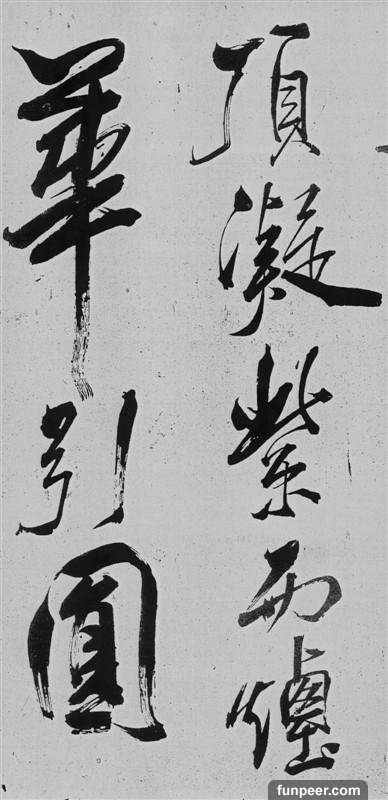 頂凝紫而爐
華引圓
funpeer.com